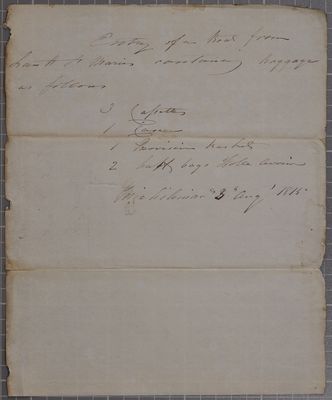 Entry of a Boat from
Sault St Maries containing baggage
as follows
3 Cassettes
1
1 Provision basket
2 bags
Michilimac 3d Augt 1815